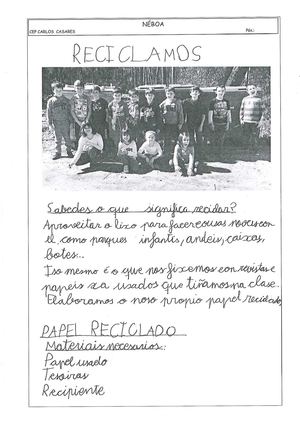 NÉBOA
CEP CARLOS CASARES Páx.:
RECICLAMOS
Sabedes o que significa reciclar?
Aproveitar o lixo para facer cousas novas con
el, como parques infantís, andeis, caixas,
botes...
Iso mesmo é o que nos fixemos con revistas e
papeis xa usados que tiñamos na clase.
Elaboramos o noso propio papel reciclado,
PAPEL RECICLADO
Materiais necesarios:
Papel usado
Tesoiras
Recipiente